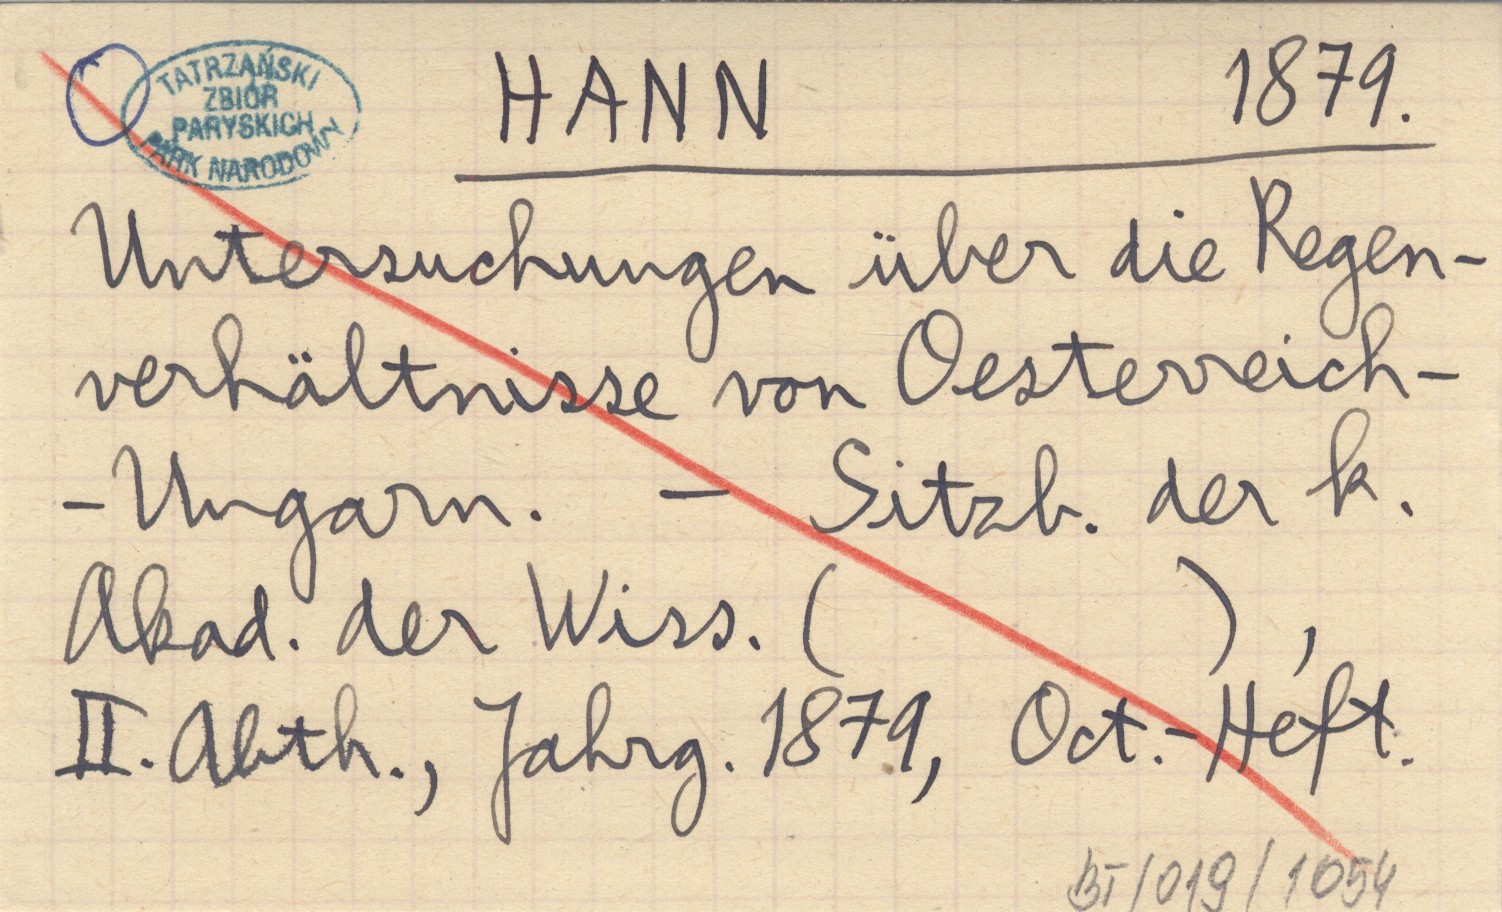 TATRZAŃSKI
ZBIÓR
PARYSKICH
PARK NARODOWY
HANN 1879.
Untersuchungen über die Regen-
verhältnisse von Oesterreich-
-Ungarn. — Sitzb. der k.
Akad. der Wiss. ( ),
II. Abth., Jahrg. 1879, Oct.-Heft.
BT/019/1054